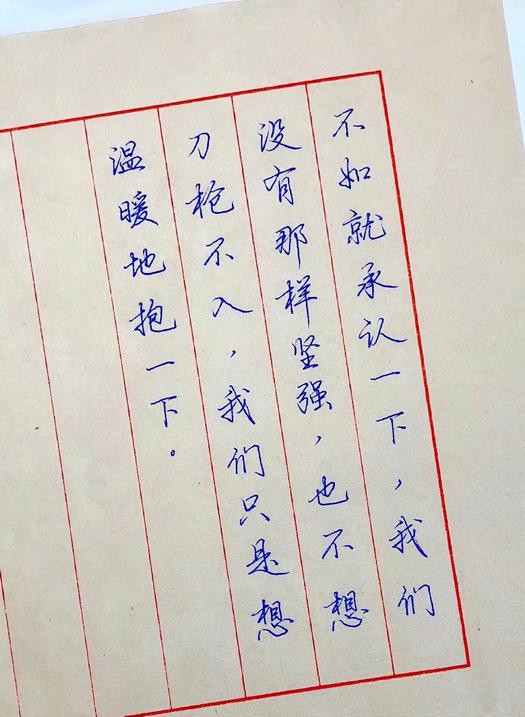 不如就承认一下，我们
没有那样坚强，也不想
刀枪不入，我们只是想
温暖地抱一下。